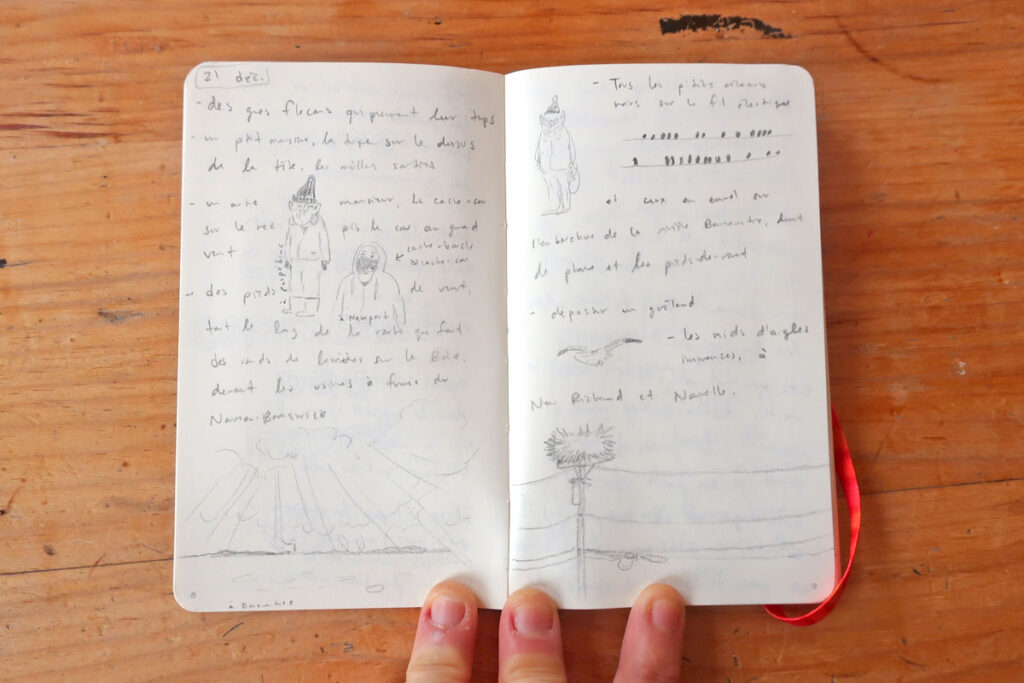 21 déc.
- des gros flocons qui prennent leur temps
- un ptit monsieur, la tuque sur le dessus
de la tête, les oreilles sorties
- un autre monsieur, le cache-cou
sur le nez pis le cou au grand
vent
à paspébiac
cache-barbe
cache-cou
à Newport
- des pieds de vent,
tout le long de la route qui font
des ronds de lumières sur la Baie,
devant les usines à fumée du
Nouveau-Brunswick
à Bonaventure
8
- Tous les p'tits oiseaux
noirs sur le fil électrique
et ceux en envol sur
l'embouchure de la rivière Bonaventure, dont
de phare et les pieds-de-vent
- dépasser un goéland
- les nids d'aigles
immenses, à
New Richmond et Nouvelle.
9